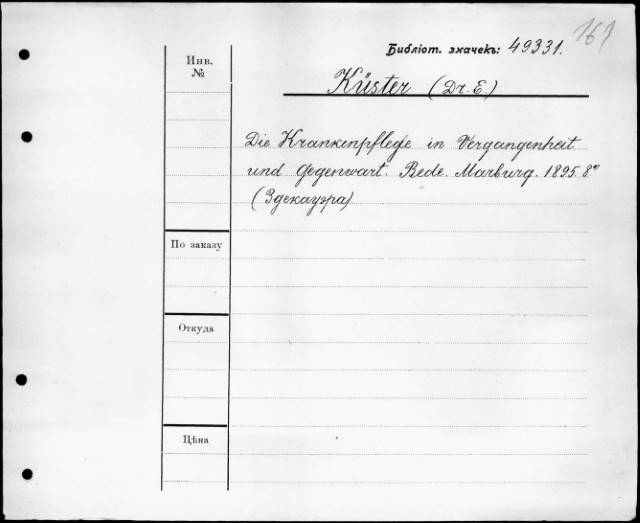 161
Библіот. значекъ: 49331.
Инв.
№
Küster (Dr. E.)
Die Krankenpflege in Vergangenheit
und Gegenwart. Rede. Marburg. 1895. 8°
(Здекауэра)
По заказу
Откуда
Цѣна